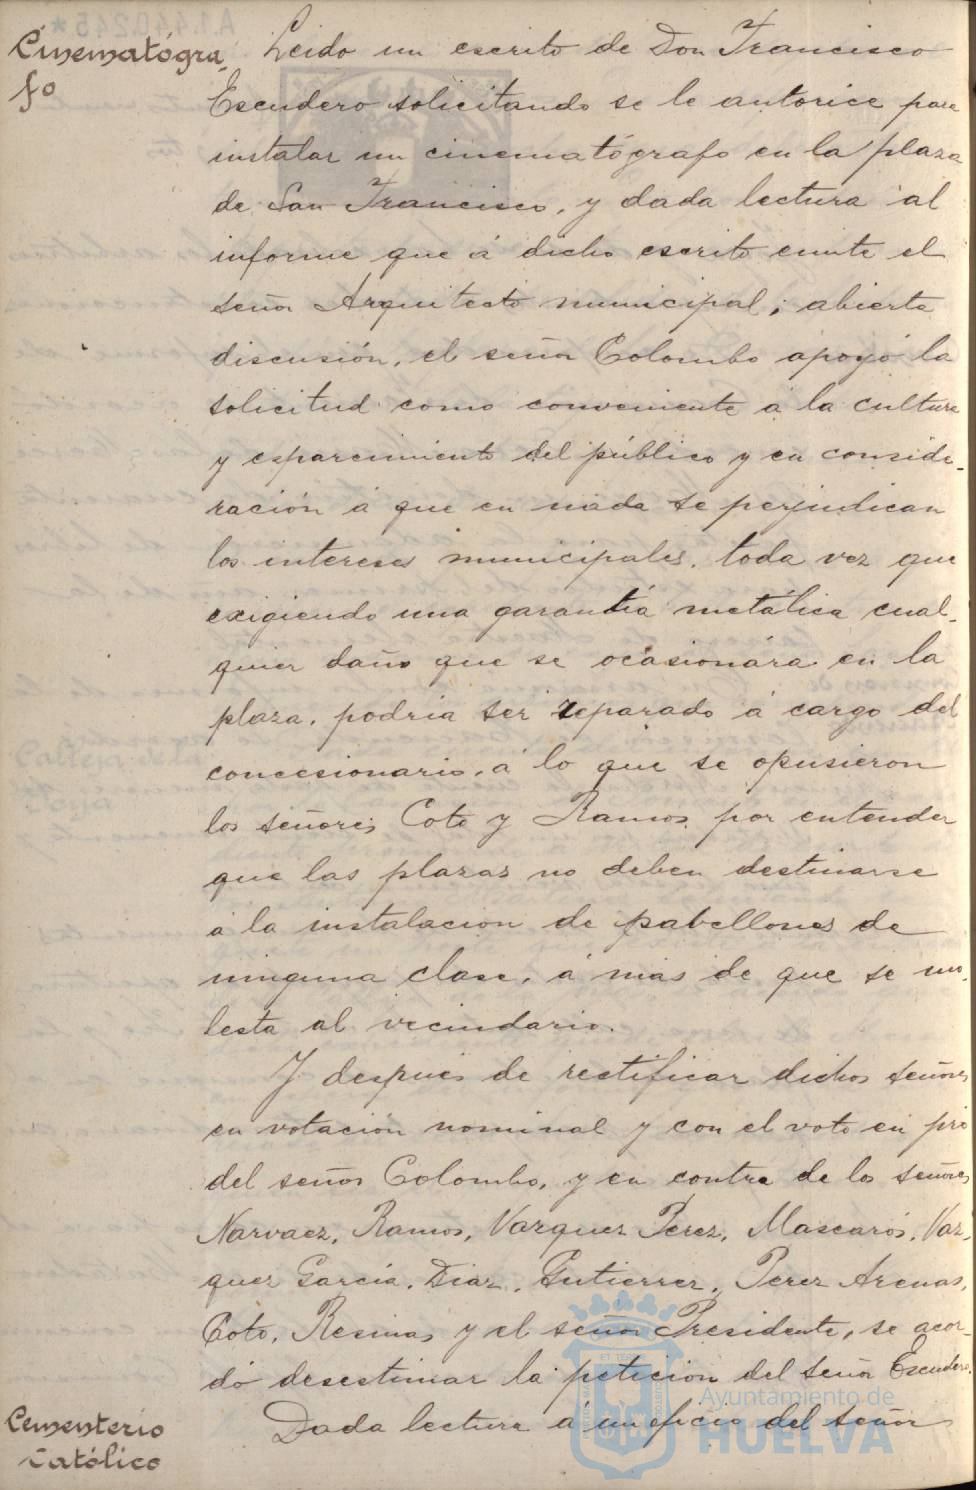 Cinematógra-
fo
Leido un escrito de Don Francisco
Escudero solicitando se le autorice para
instalar un cinematógrafo en la plaza
de San Francisco, y dada lectura al
informe que á dicho escrito emite el
señor Arquitecto municipal; abierta
discusión, el señor Colombo apoyó la
solicitud como conveniente á la cultura
y esparcimiento del público y en conside-
ración á que en nada se perjudican
los intereses municipales, toda vez que
exigiendo una garantía metálica cual-
quier daño que se ocasionára en la
plaza, podría ser reparado á cargo del
concesionario, á lo que se opusieron
los señores Coto y Ramos por entender
que las plazas no deben destinarse
á la instalación de pabellones de
ninguna clase, á mas de que se mo-
lesta al vecindario.
Y después de rectificar dichos señores
en votación nominal y con el voto en pró
del señor Colombo, y en contra de los señores
Narvaez, Ramos, Vazquez Perez, Mascarós, Vaz-
quez García, Diaz, Gutierrez, Perez Arenas,
Coto, Resinas y el señor Presidente, se acor-
dó desestimar la petición del señor Escudero.
Cementerio
Católico
Dada lectura á un oficio del señor
Ayuntamiento de
HUELVA
Calleja de la
A.1.440.245*